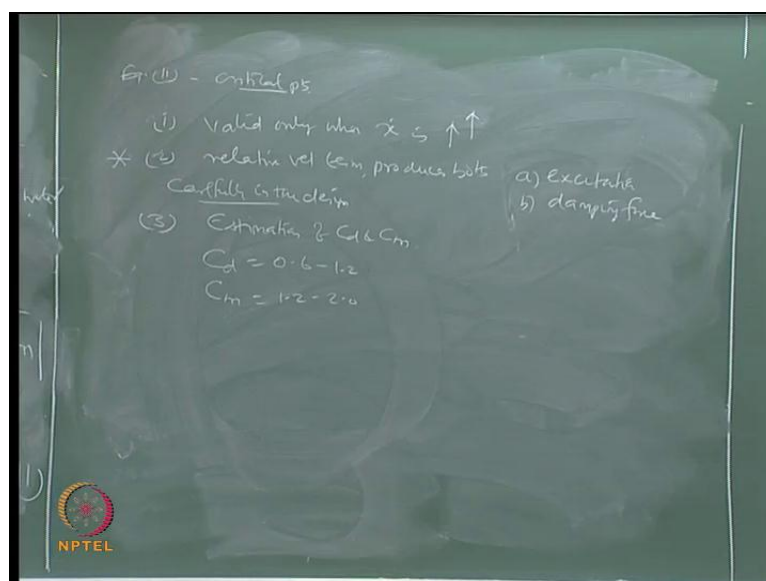 Eq.(1) - critical pts
(i) valid only when ẋ is ↑↑
* (2) relative vel term, produces both
a) excitation
b) damping force
Carefully in the design
(3) Estimation of Cd & Cm
Cd = 0.6 - 1.2
Cm = 1.2 - 2.0
NPTEL